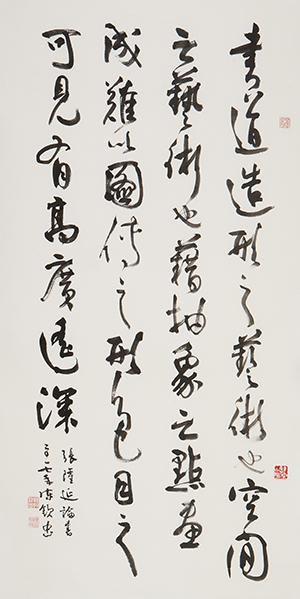 書道造形之藝術也空間
之藝術也藉抽象之點畫
成難以圖傳之形色目之
可見有高廣遙深
張隆延論書
年陳欽忠